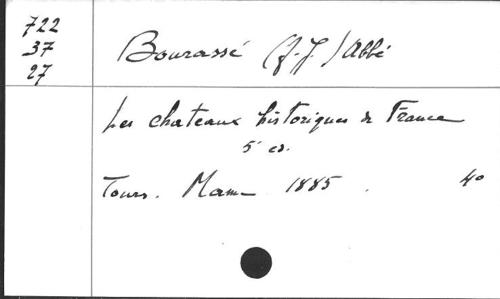 722
37
27
Bourassé (J.-J.) Abbé
Les chateaux historiques de France
5e ed.
Tours. Mame 1885. 4°